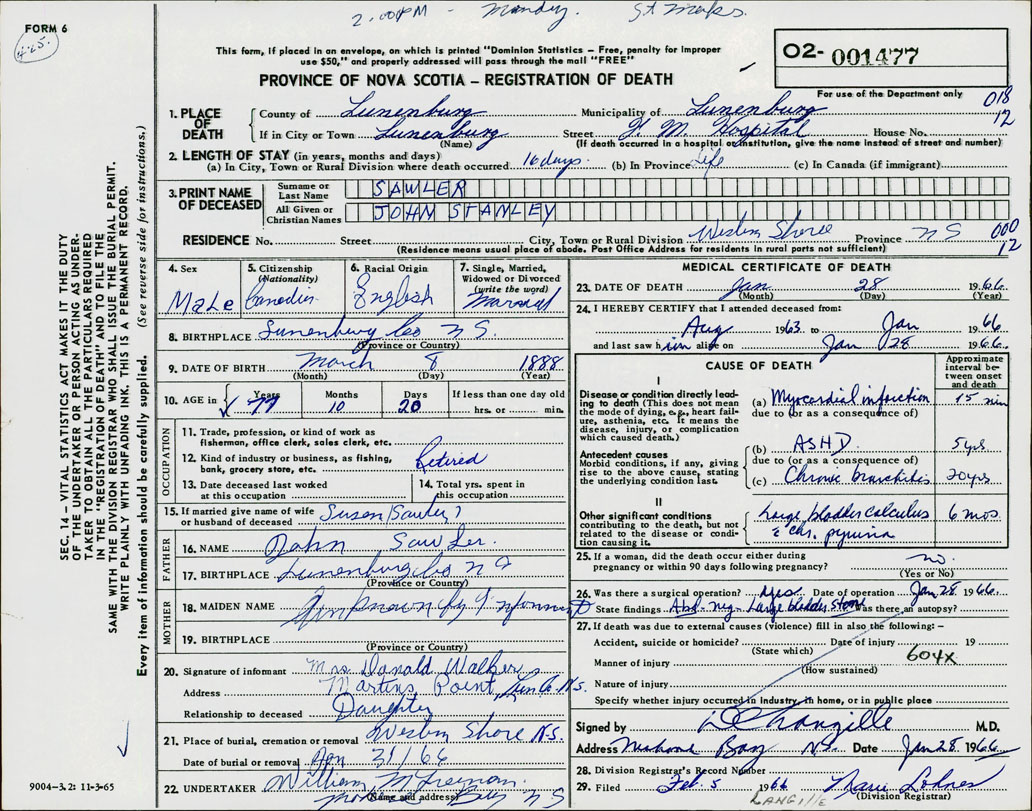 2.00PM - Monday. St Marks.
FORM 6
425.
This form, if placed in an envelope, on which is printed "Dominion Statistics – Free, penalty for improper
use $50," and properly addressed will pass through the mail "FREE"
PROVINCE OF NOVA SCOTIA – REGISTRATION OF DEATH
O2- 001477
For use of the Department only
018
12
1. PLACE OF DEATH
County of Lunenburg Municipality of Lunenburg
If in City or Town Lunenburg Street F. M. Hospital House No.
(Name) (If death occurred in a hospital or institution, give the name instead of street and number)
2. LENGTH OF STAY (in years, months and days)
(a) In City, Town or Rural Division where death occurred 16 days (b) In Province Life (c) In Canada (if immigrant)
3. PRINT NAME OF DECEASED
Surname or Last Name SAWLER
All Given or Christian Names JOHN STANLEY
RESIDENCE No. Street City, Town or Rural Division Western Shore Province N S
000
12
(Residence means usual place of abode. Post Office Address for residents in rural parts not sufficient)
4. Sex Male
5. Citizenship (Nationality) Canadian
6. Racial Origin English
7. Single, Married, Widowed or Divorced (write the word) Married
8. BIRTHPLACE Lunenburg Co N S.
(Province or Country)
9. DATE OF BIRTH March 8 1888
(Month) (Day) (Year)
10. AGE in Years 77 Months 10 Days 20 If less than one day old
hrs. or min.
OCCUPATION
11. Trade, profession, or kind of work as
fisherman, office clerk, sales clerk, etc.
12. Kind of industry or business, as fishing,
bank, grocery store, etc. Retired
13. Date deceased last worked
at this occupation
14. Total yrs. spent in
this occupation
15. If married give name of wife
or husband of deceased Susen Sawler
FATHER
16. NAME John Sawler.
17. BIRTHPLACE Lunenburg Co N S
(Province or Country)
MOTHER
18. MAIDEN NAME Unknown by Informant
19. BIRTHPLACE
(Province or Country)
20. Signature of informant Mrs. Donald Walker
Address Martins Point, Lun Co. N.S.
Relationship to deceased Daughter
21. Place of burial, cremation or removal Western Shore N.S.
Date of burial or removal Jan 31/66
22. UNDERTAKER William
(Name and address) Bay N S
MEDICAL CERTIFICATE OF DEATH
23. DATE OF DEATH Jan 28 1966
(Month) (Day) (Year)
24. I HEREBY CERTIFY that I attended deceased from:
Aug 1963 to Jan 1966
and last saw him alive on Jan 28 1966
CAUSE OF DEATH
Approximate interval between onset and death
I
Disease or condition directly leading to death (This does not mean the mode of dying, e.g., heart failure, asthenia, etc. It means the disease, injury, or complication which caused death.)
(a) Myocardial infarction 15 min
due to (or as a consequence of)
Antecedent causes
Morbid conditions, if any, giving rise to the above cause, stating the underlying condition last.
(b) ASHD. 5 yrs
due to (or as a consequence of)
(c) Chronic bronchitis 20 yrs
II
Other significant conditions
contributing to the death, but not related to the disease or condition causing it.
Large bladder calculus 6 mos.
c̄ chr. pyuria
25. If a woman, did the death occur either during
pregnancy or within 90 days following pregnancy? no.
(Yes or No)
26. Was there a surgical operation? yes Date of operation Jan 28 1966
State findings Abd. neg - Large bladder stone Was there an autopsy?
27. If death was due to external causes (violence) fill in also the following: –
Accident, suicide or homicide? Date of injury 19
(State which)
604X
Manner of injury
(How sustained)
Nature of injury
Specify whether injury occurred in industry, in home, or in public place
Signed by Langille M.D.
Address Mahone Bay N.S. Date Jan 28 1966
28. Division Registrar's Record Number
29. Filed Feb. 5 1966 Marie Lohnes
LANGILLE (Division Registrar)
SEC. 14 – VITAL STATISTICS ACT MAKES IT THE DUTY
OF THE UNDERTAKER OR PERSON ACTING AS UNDER-
TAKER TO OBTAIN ALL THE PARTICULARS REQUIRED
IN THE "REGISTRATION OF DEATH" AND TO FILE THE
SAME WITH THE DIVISION REGISTRAR WHO SHALL ISSUE THE BURIAL PERMIT.
WRITE PLAINLY WITH UNFADING INK. THIS IS A PERMANENT RECORD.
Every item of information should be carefully supplied. (See reverse side for instructions.)
9004–3.21 11-3-65